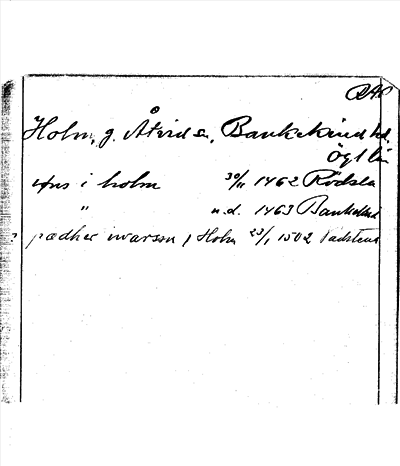 RAP
Holm, g. Åtvid sn, Bankekinds hd,
Ögl län
i holm 30/11 1462 Rödsla
" u.d. 1463 Bankekind
? pædher iwarson, Holm 23/1 1502 Vadstena